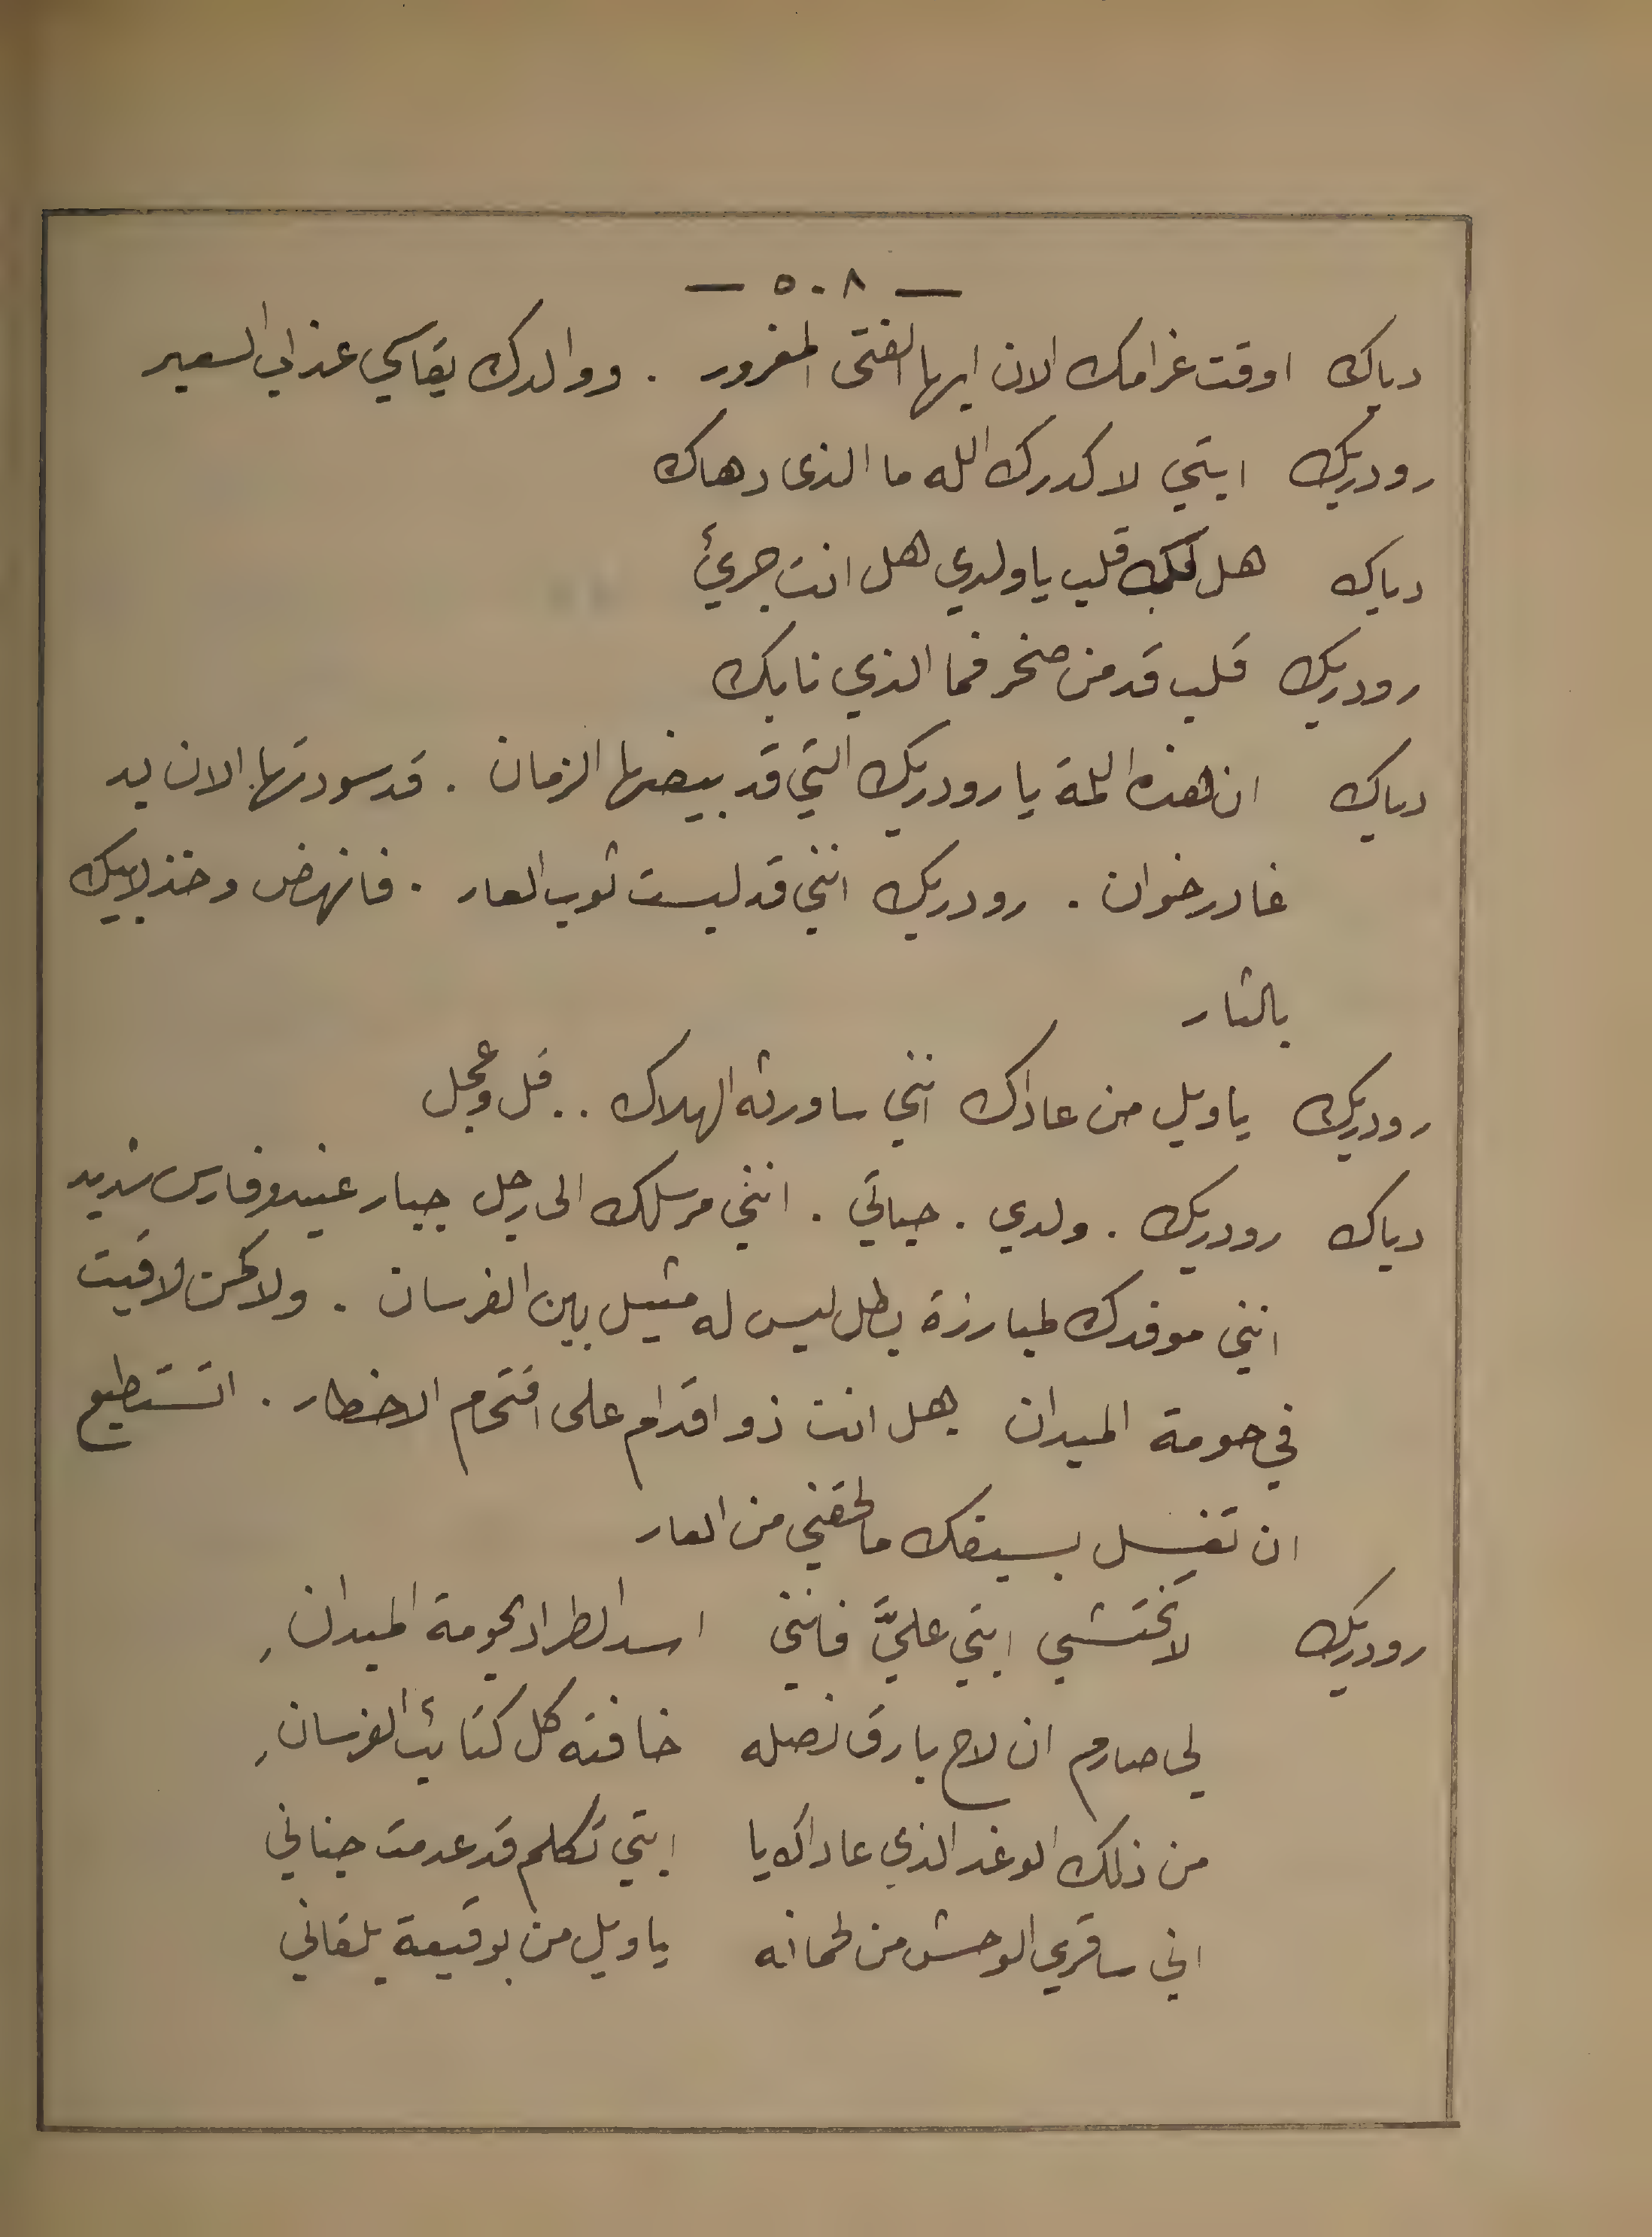 — ٥٠٨ —
دياك اوقت غرامك الان ايها الفتى المغرور . ووالدك يقاسي عذاب السعير
رودريك ابتي لا كدرك الله ما الذى دهاك
دياك هل لك قلب يا ولدي هل انت جريئ
رودريك قلب قد من صخر فما الذي نابك
دياك ان هذه اللمة يا رودريك التي قد بيضها الزمان . قد سودتها الان يد
غادر خوان . رودريك انني قد لبست ثوب العار . فانهض وخذ لابيك
بالثار
رودريك يا ويل من عاداك انني ساورثه الهلاك .. قل وعجل
دياك رودريك . ولدي . حياتي . انني مرسلك الى رجل جبار عنيد وفارس شديد
انني موفدك لمبارزة بطل ليس له مثيل بين الفرسان . ولا كمن لاقيت
في حومة الميدان هل انت ذو اقدام على اقتحام الاخطار . اتستطيع
ان تغسل بسيفك ما لحقني من العار
رودريك لا تختشي ابتي عليَّ فانني اسد الطراد بحومة الميدانِ
لي صارم ان لاح بارق نصله خافته كل كتائب الفرسانِ
من ذلك الوغد الذي عاداك يا ابتي تكلم قد عدمت جناني
اني ساقري الوحش من لحمانه يا ويل من بوقيعة يلقاني